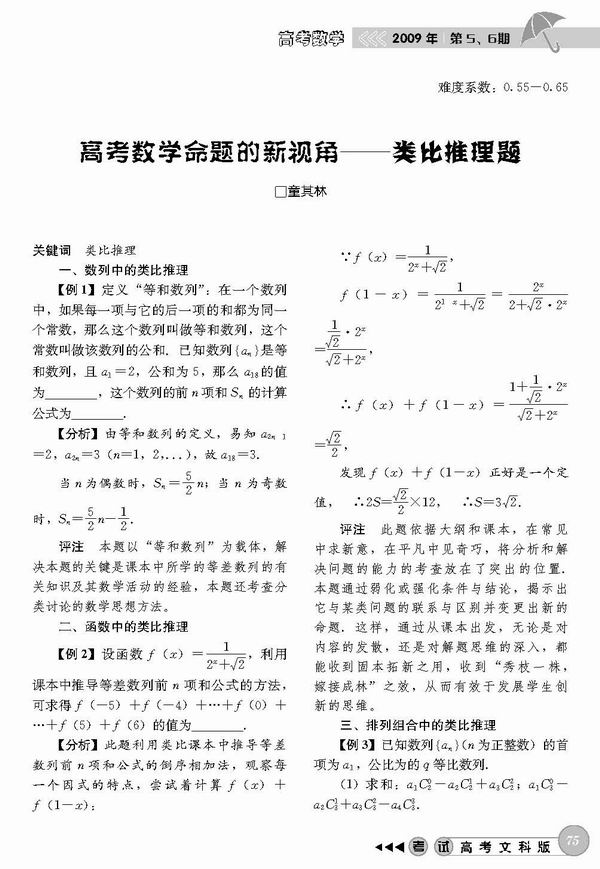 高考数学 <<< 2009年 第5、6期
难度系数：0.55－0.65
高考数学命题的新视角——类比推理题
□童其林
关键词 类比推理
一、数列中的类比推理
【例1】定义“等和数列”：在一个数列
中，如果每一项与它的后一项的和都为同一
个常数，那么这个数列叫做等和数列，这个
常数叫做该数列的公和．已知数列{aₙ}是等
和数列，且 a₁＝2，公和为 5，那么 a₁₈的值
为________，这个数列的前 n 项和 Sₙ 的计算
公式为________．
【分析】由等和数列的定义，易知 a₂ₙ ₁
＝2，a₂ₙ＝3（n＝1，2，...），故 a₁₈＝3．
当 n 为偶数时，Sₙ＝5/2 n；当 n 为奇数
时，Sₙ＝5/2 n－1/2．
评注 本题以“等和数列”为载体，解
决本题的关键是课本中所学的等差数列的有
关知识及其数学活动的经验，本题还考查分
类讨论的数学思想方法。
二、函数中的类比推理
【例2】设函数 f（x）＝1/(2ˣ＋√2)，利用
课本中推导等差数列前 n 项和公式的方法，
可求得 f（－5）＋f（－4）＋…＋f（0）＋
…＋f（5）＋f（6）的值为________．
【分析】此题利用类比课本中推导等差
数列前 n 项和公式的倒序相加法，观察每
一个因式的特点，尝试着计算 f（x）＋
f（1－x）：
∵f（x）＝1/(2ˣ＋√2)，
f（1－x）＝1/(2¹ ˣ＋√2)＝2ˣ/(2＋√2·2ˣ)
＝(1/√2·2ˣ)/(√2＋2ˣ)，
∴f（x）＋f（1－x）＝(1＋1/√2·2ˣ)/(√2＋2ˣ)
＝√2/2，
发现 f（x）＋f（1－x）正好是一个定
值，∴2S＝√2/2×12，∴S＝3√2．
评注 此题依据大纲和课本，在常见
中求新意，在平凡中见奇巧，将分析和解
决问题的能力的考查放在了突出的位置．
本题通过弱化或强化条件与结论，揭示出
它与某类问题的联系与区别并变更出新的
命题．这样，通过从课本出发，无论是对
内容的发散，还是对解题思维的深入，都
能收到固本拓新之用，收到“秀枝一株，
嫁接成林”之效，从而有效于发展学生创
新的思维。
三、排列组合中的类比推理
【例3】已知数列{aₙ}（n 为正整数）的首
项为 a₁，公比为的 q 等比数列．
（1）求和：a₁C₂⁰－a₂C₂¹＋a₃C₂²；a₁C₃⁰－
a₂C₃¹＋a₃C₃²－a₄C₃³．
◀◀◀ 考试 高考文科版 75